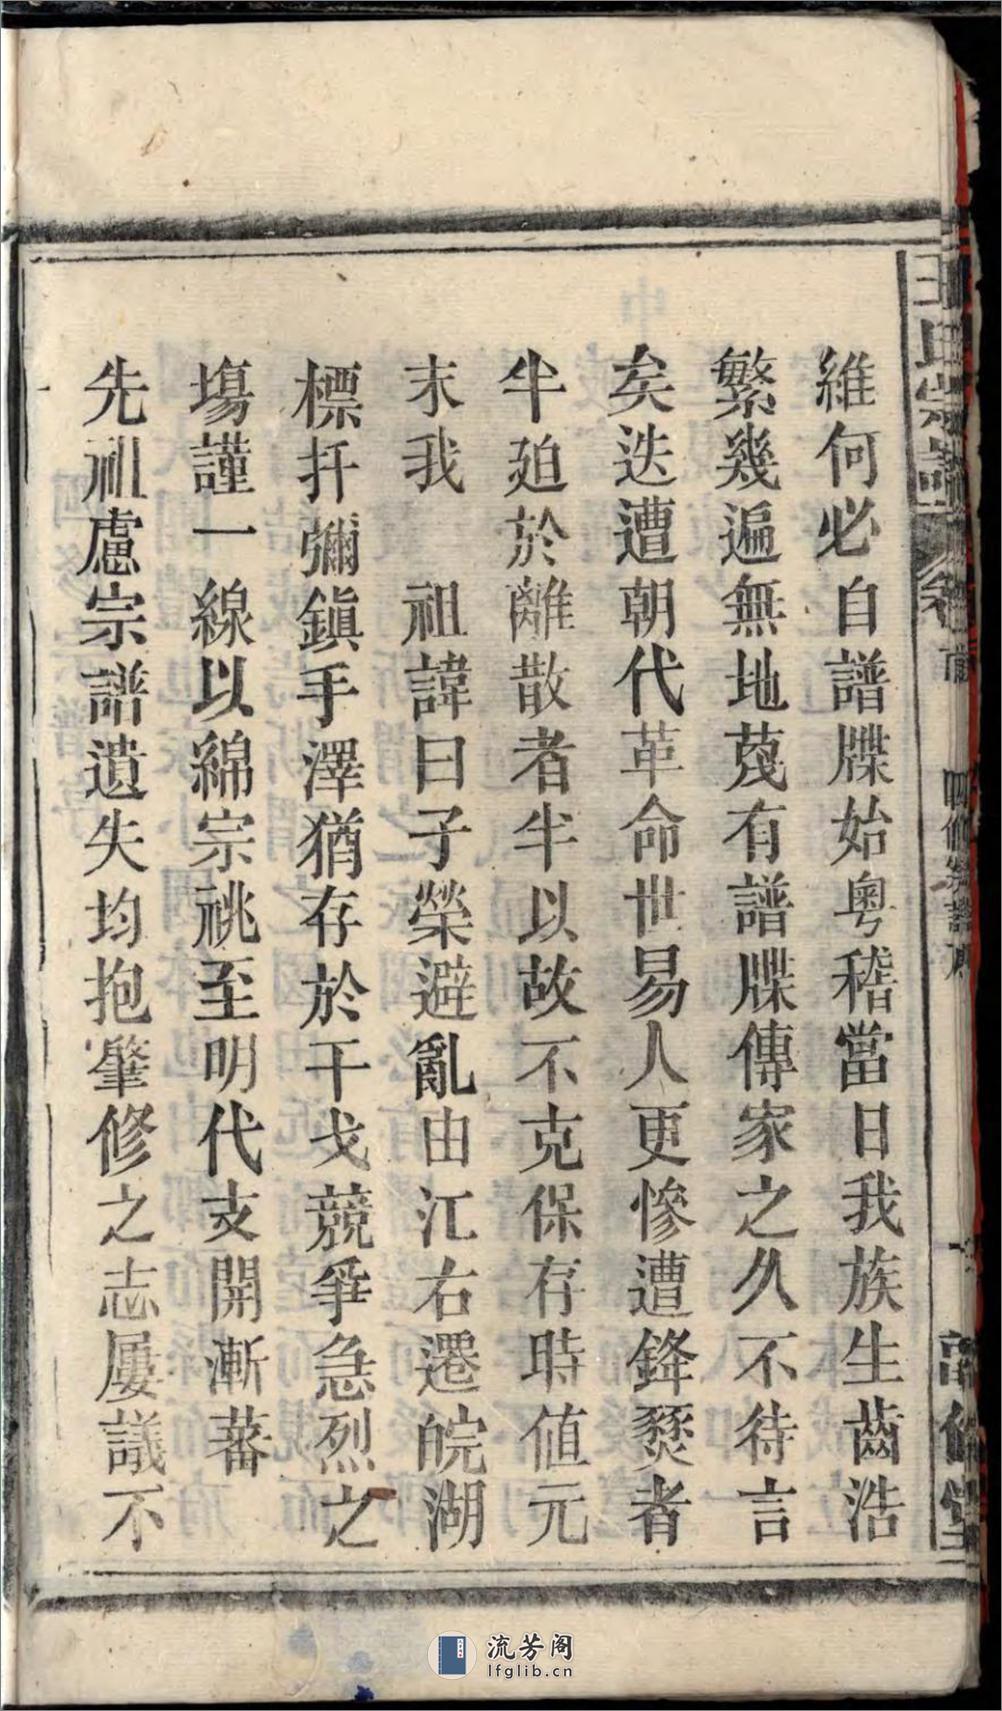 維何必自譜牒始粵稽當日我族生齒浩
繁幾遍無地蔑有譜牒傳家之久不待言
矣迭遭朝代革命世易人更慘遭鋒燹者
半廹於離散者半以故不克保存時值元
末我　祖諱曰子榮避亂由江右遷皖湖
標扦彌鎮手澤猶存於干戈競爭急烈之
塲謹一線以綿宗祧至明代支開漸蕃
先祖慮宗譜遺失均抱肇修之志屢議不
王氏宗譜
卷首
四修宗譜序
一
流芳阁
lfglib.cn